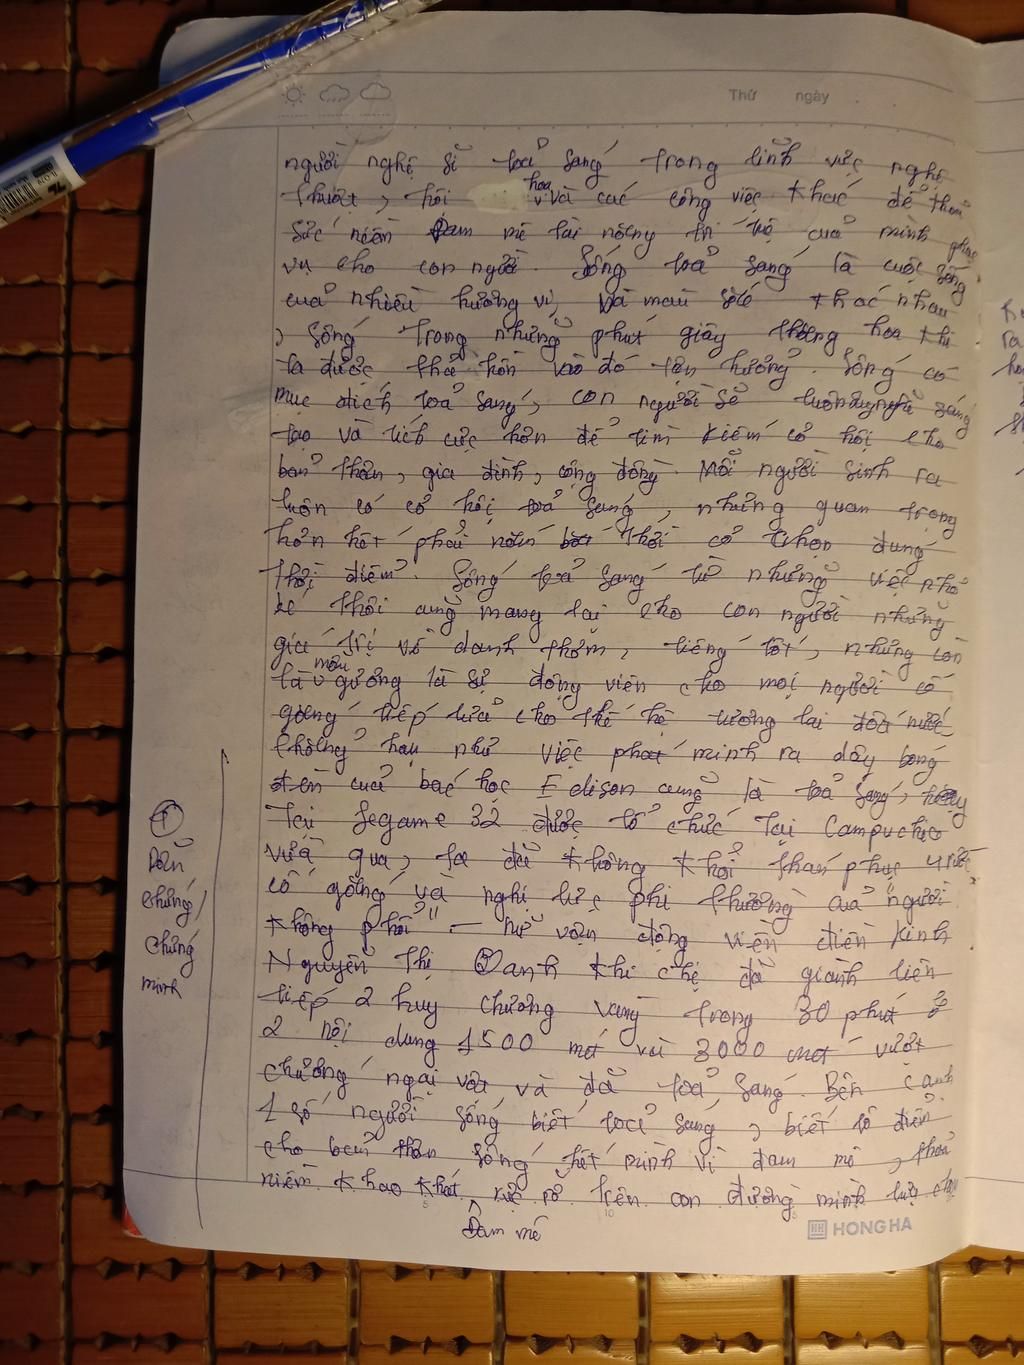 Thứ ngày
người nghệ sĩ toả sáng trong lĩnh vực nghệ
thuật, hội hoạ và các công việc khác để thoả
sức niềm đam mê tài năng trí tuệ của mình phục
vụ cho con người. Sống toả sáng là cuộc sống
của nhiều hương vị, và màu sắc khác nhau
, sống trong những phút giây thăng hoa khi
ta được thả hồn vào đó tận hưởng. Sống có
mục đích toả sáng, con người sẽ luôn sáng
tạo và tích cực hơn để tìm kiếm cơ hội cho
bản thân, gia đình, cộng đồng. Mỗi người sinh ra
luôn có cơ hội toả sáng, nhưng quan trọng
hơn hết phải nắm bắt thời cơ chọn đúng
thời điểm. Sống toả sáng từ những việc nhỏ
bé thôi cũng mang lại cho con người những
giá trị về danh thơm, tiếng tốt, nhưng còn
là mẫu gương là sự động viên cho mọi người cố
gắng tiếp lửa cho thế hệ tương lai đất nước
chẳng hạn như việc phát minh ra dây bóng
đèn của bác học Edison cũng là toả sáng, hay
Tại Segame 32 được tổ chức tại Campuchia
vừa qua, ta đã không khỏi thán phục trước
cố gắng và nghị lực phi thường của "người
không phổi" – nữ vận động viên điền kinh
Nguyễn Thị Oanh khi chị đã giành liên
tiếp 2 huy chương vàng trong 30 phút ở
2 nội dung 1500 mét và 3000 mét vượt
chướng ngại vật và đã toả sáng. Bên cạnh
1 số người sống biết toả sáng, biết tô điểm
cho bản thân sống hết mình vì đam mê, thoả
niềm khao khát rực rỡ trên con đường mình lựa chọn
Đam mê
①
Dẫn
chứng/
chứng
minh
HONG HA